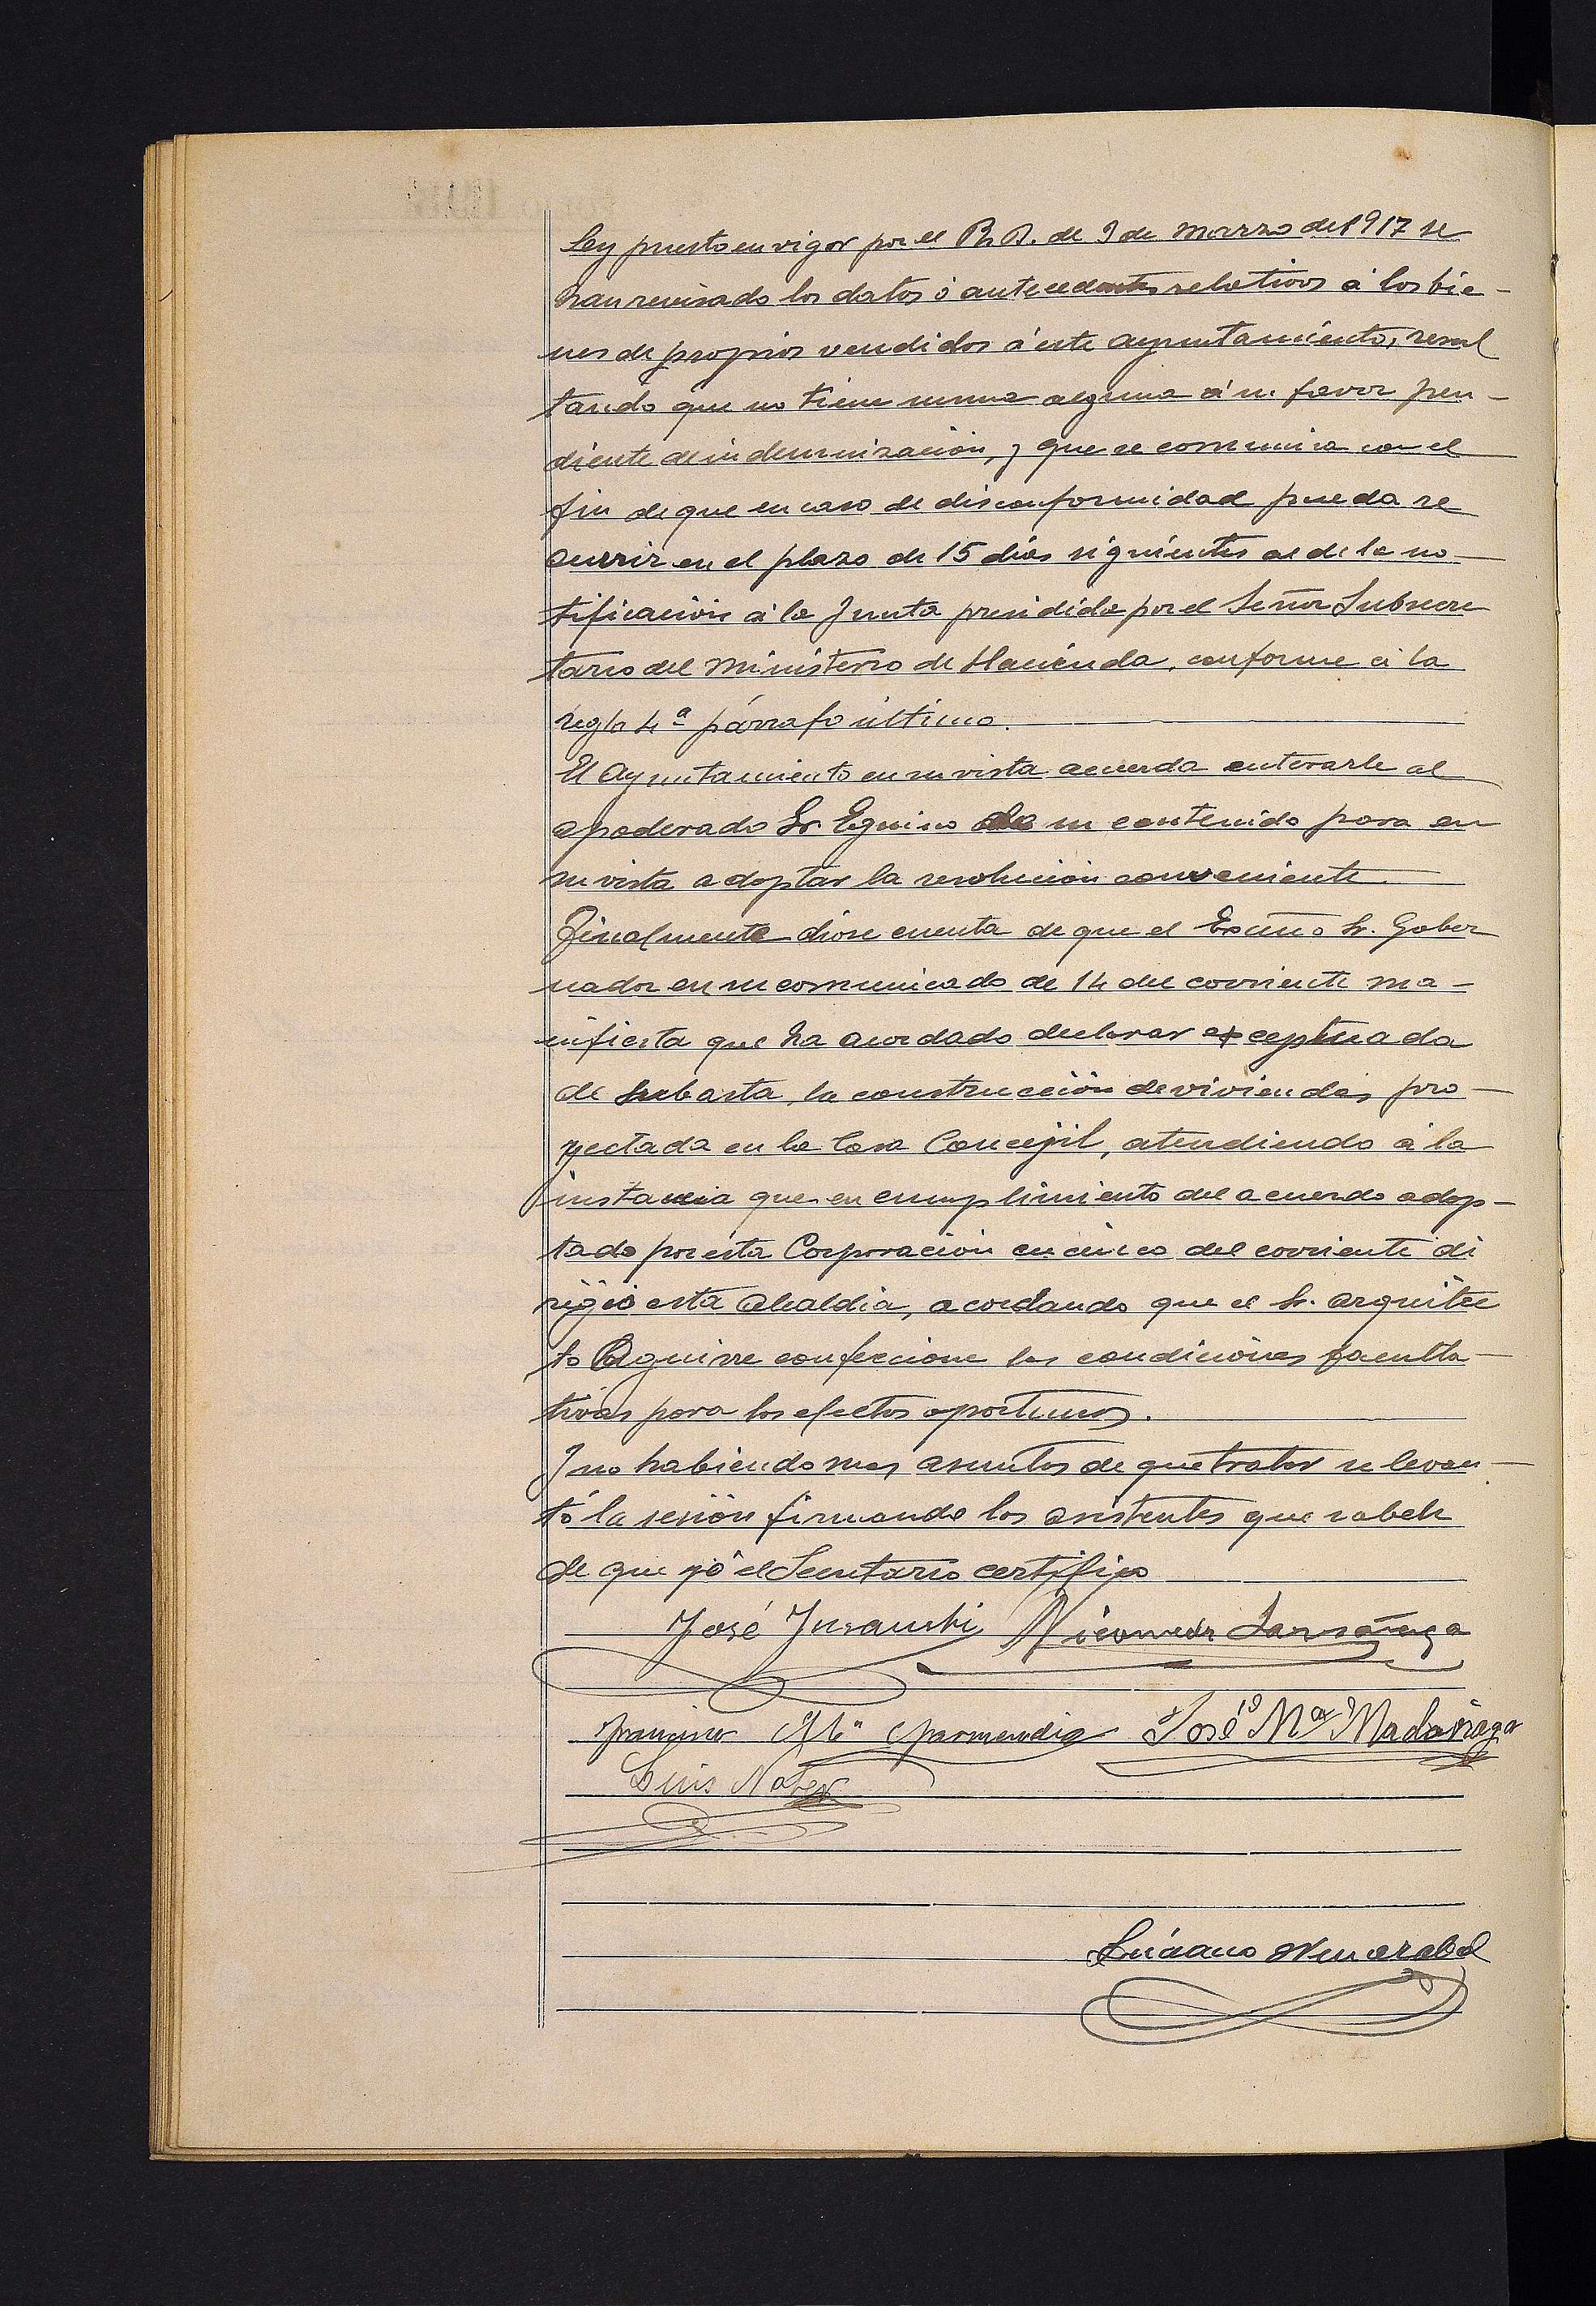 ley puesto en vigor por el R. D. de 9 de Marzo de 1917 se
han revisado los datos ó antecedentes relativos á los bie-
nes de propios vendidos á este ayuntamiento, resul
tando que no tiene suma alguna á su favor pen-
diente de indemnización, y que se comunica con el
fin de que en caso de disconformidad pueda re
currir en el plazo de 15 días siguientes al de la no-
tificación á la Junta presidida por el Señor Subsecre
tario del Ministerio de Hacienda, conforme á la
regla 4ª párrafo último.
El Ayuntamiento en su vista acuerda enterarle al
apoderado Sr. Eguino de su contenido para en
su vista adoptar la resolución conveniente.
Finalmente dióse cuenta de que el Excmo Sr. Gober
nador en su comunicado de 14 del corriente ma-
nifiesta que ha acordado declarar exceptuada
de subasta, la construcción de viviendas pro-
yectada en la Casa Concejil, atendiendo á la
instancia que en cumplimiento del acuerdo adop-
tado por esta Corporación en cinco del corriente di
rigió esta Alcaldía, acordando que el Sr. arquitec
to Aguirre confeccione las condiciones faculta-
tivas para los efectos oportunos.
Y no habiendo mas asuntos de que tratar se levan-
tó la sesión firmando los asistentes que saben
de que yó el Secretario certifico
José Nicomedes Larrañaga
Francisco Garmendia José Mª Madariaga
Luis
Luciano